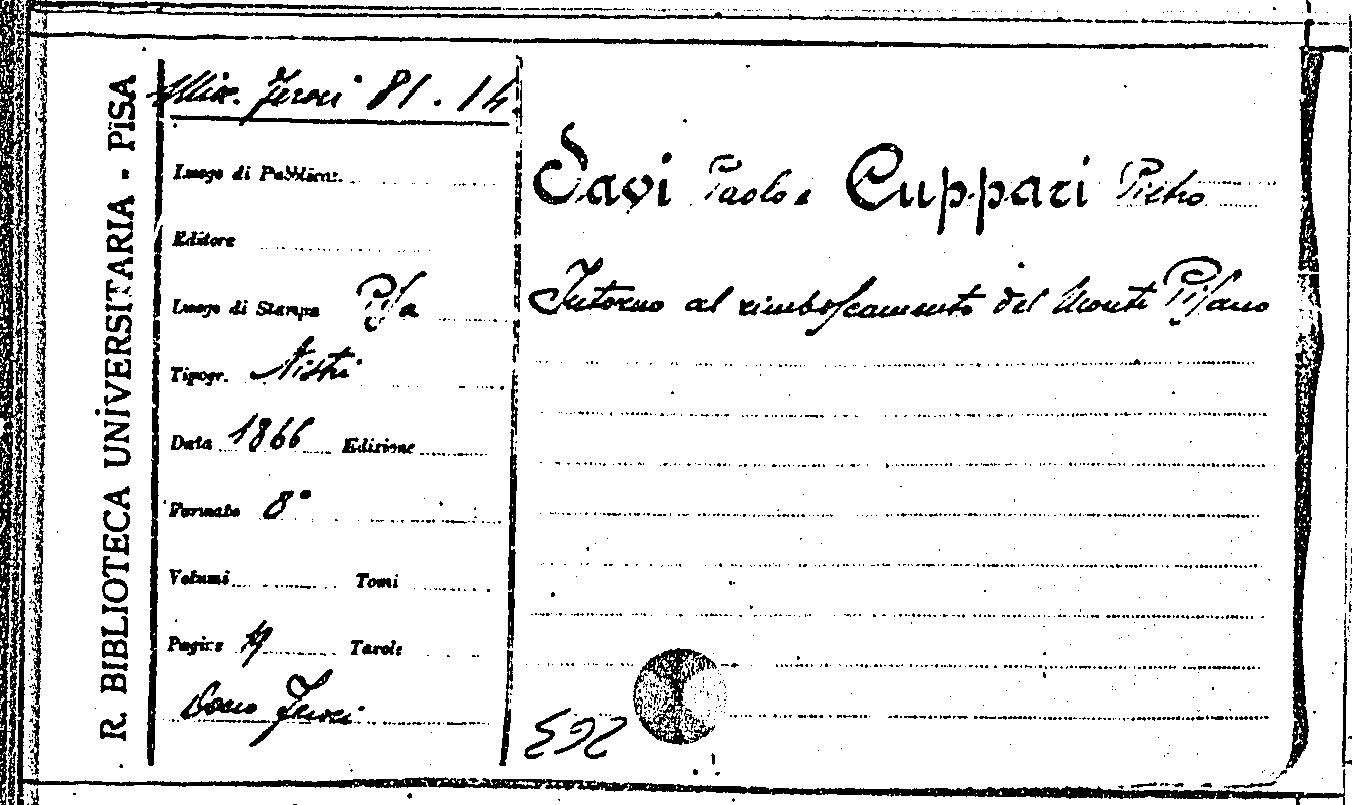 R. BIBLIOTECA UNIVERSITARIA - PISA
Misc. Feroci 81. 14.
Luogo di Pubblicaz.
Editore
Luogo di Stampa Pisa
Tipogr. Nistri
Data 1866 Edizione
Formato 8°
Volumi Tomi
Pagine Tavole
Dono Feroci
Savi Paolo e Cuppari Pietro
Intorno al rimboscamento del Monte Pisano